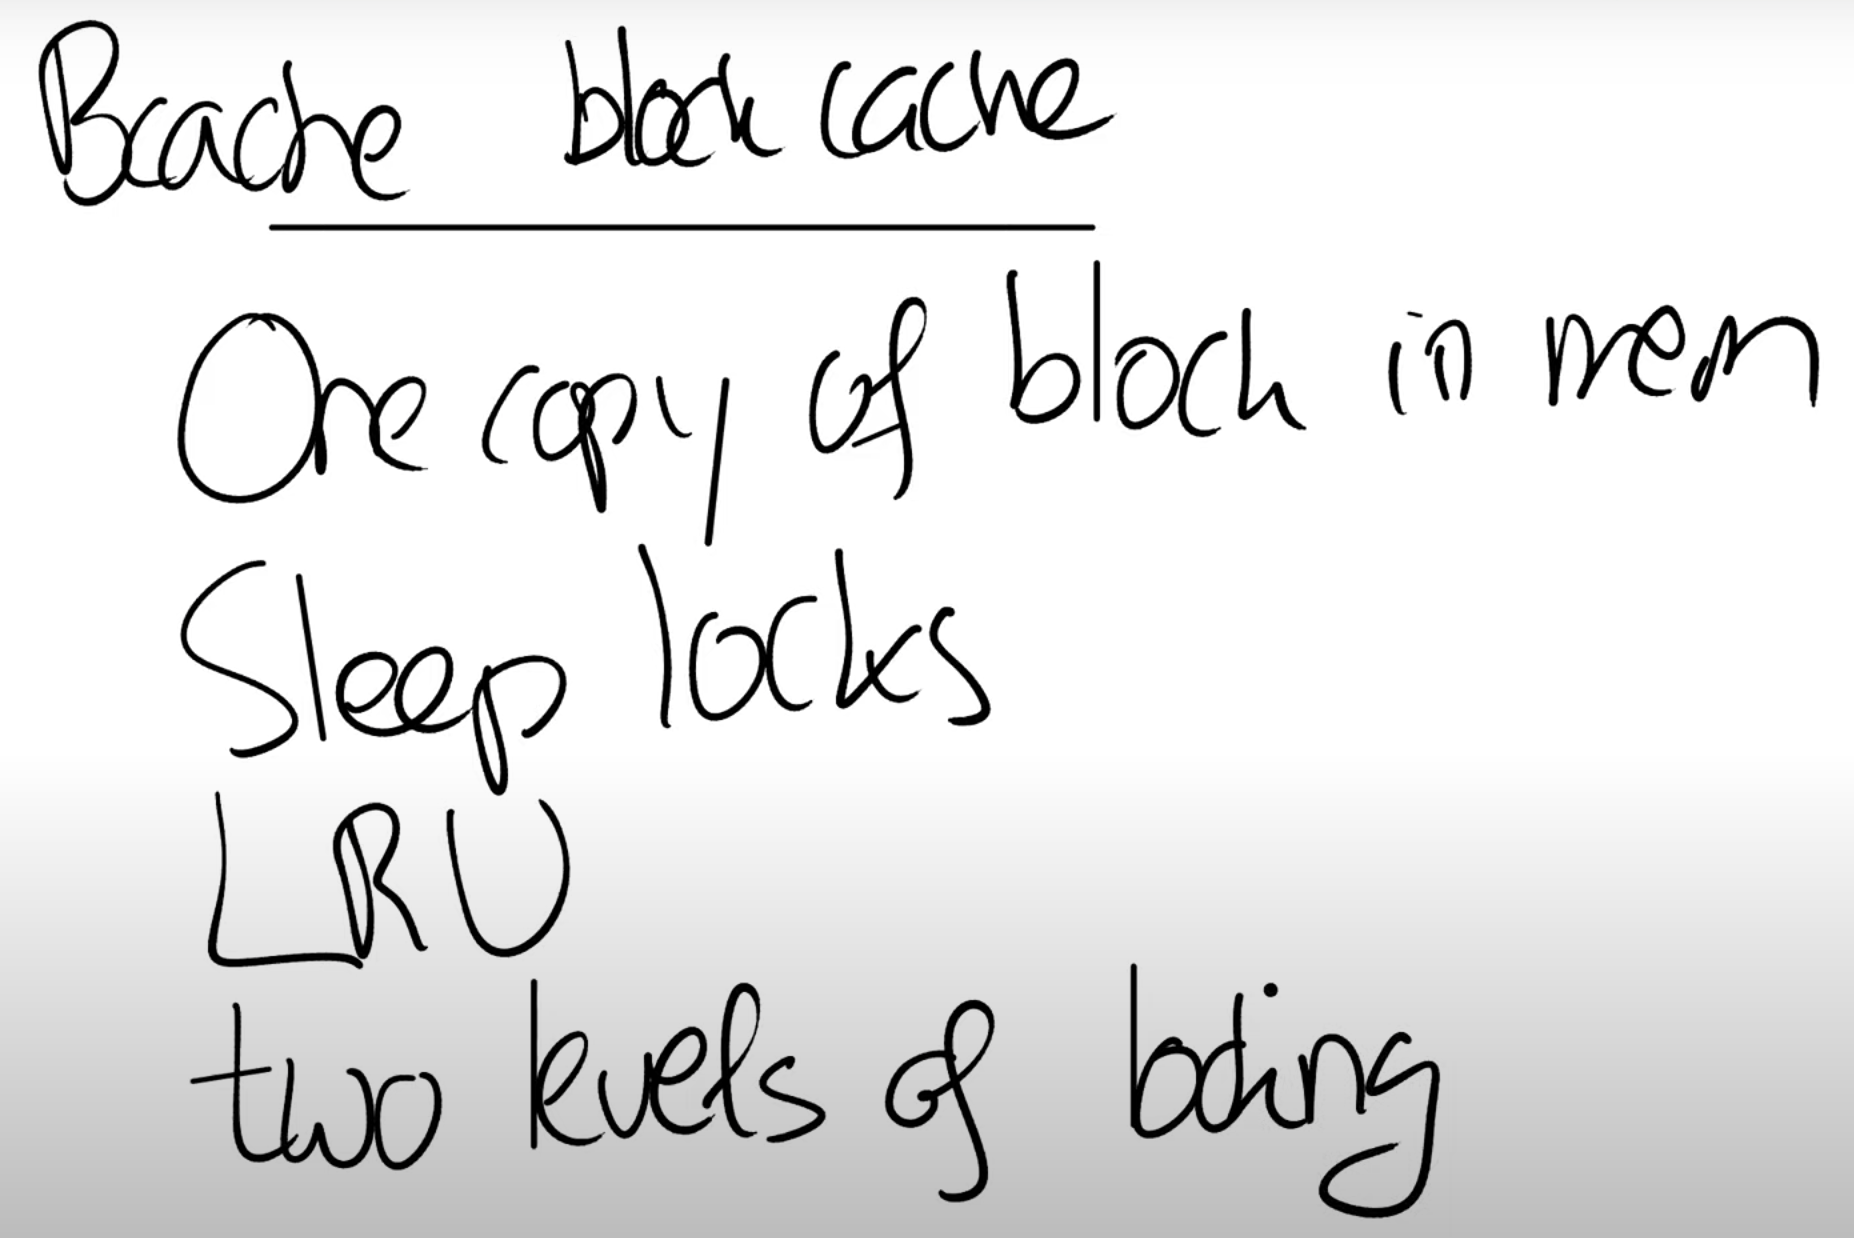 Bcache block cache
One copy of block in mem
Sleep locks
LRU
two levels of locking